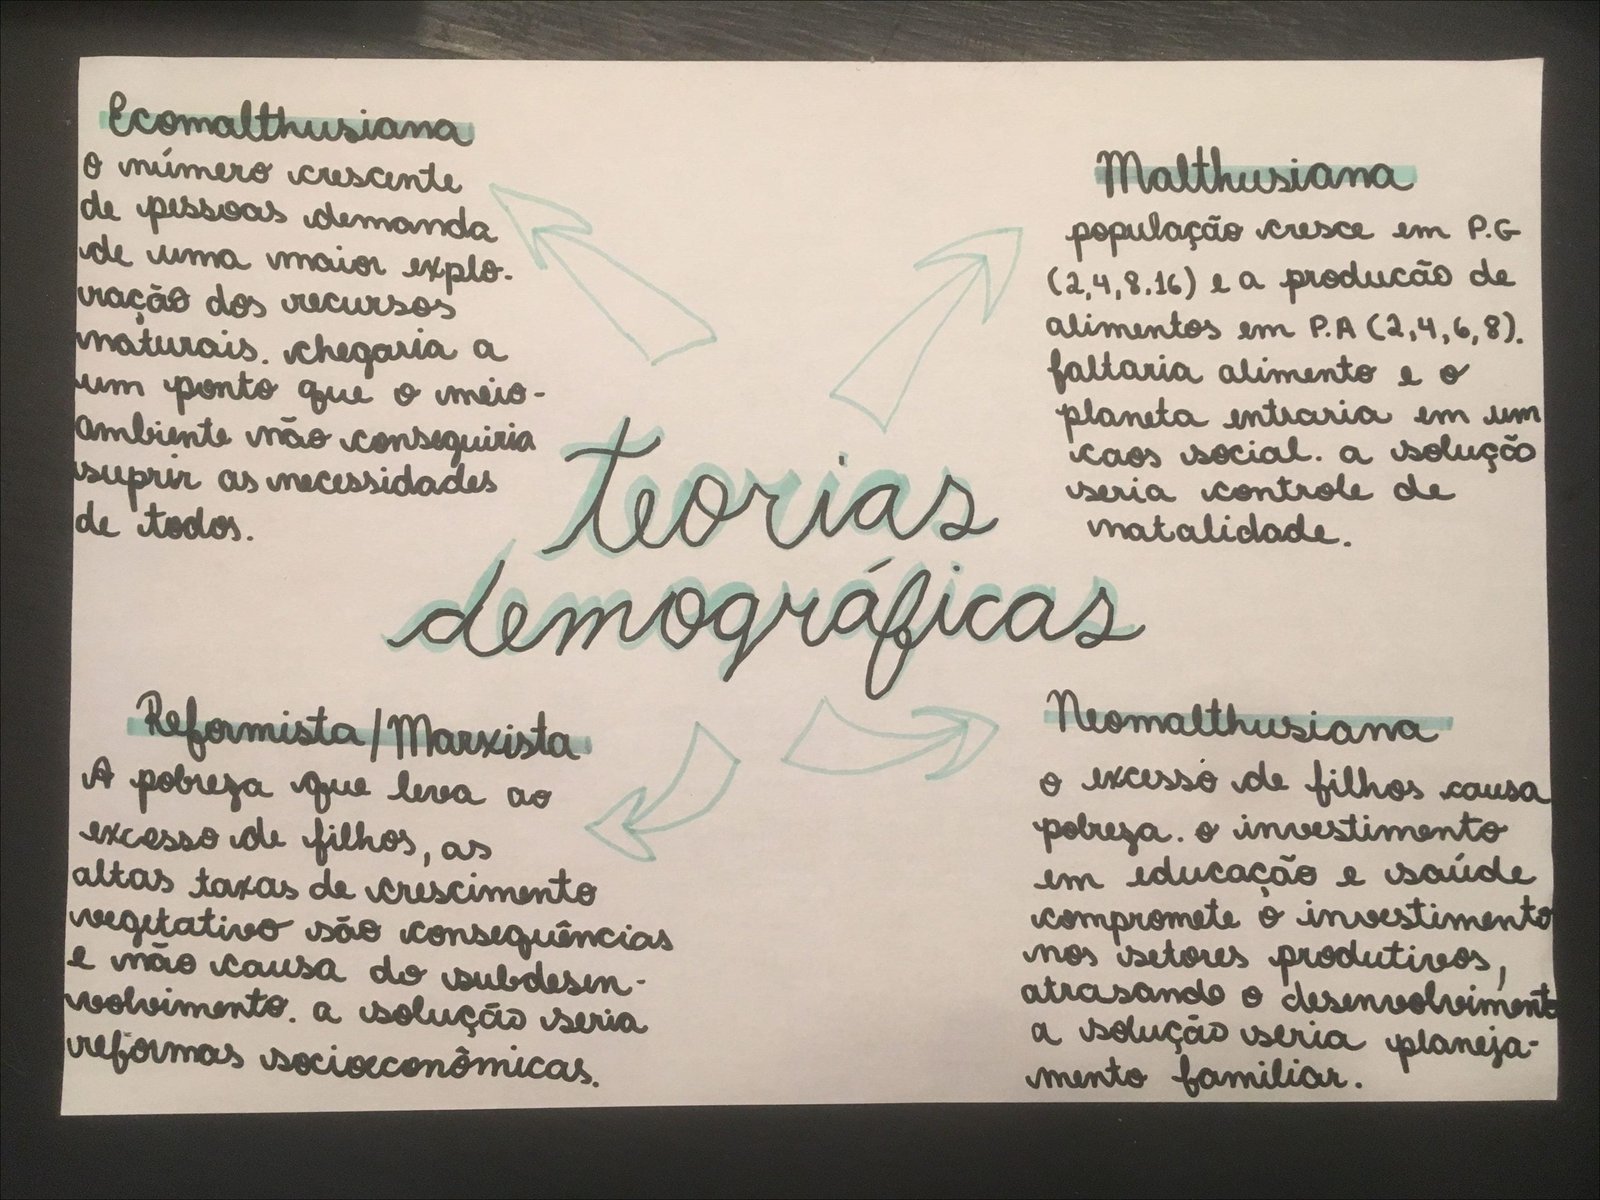 Ecomalthusiana
O número crescente
de pessoas demanda
de uma maior explo-
ração dos recursos
naturais. chegaria a
um ponto que o meio-
ambiente não conseguiria
suprir as necessidades
de todos.
Malthusiana
população cresce em P.G
(2,4,8.16) e a producão de
alimentos em P.A (2,4,6,8).
faltaria alimento e o
planeta entraria em um
caos social. a solução
seria controle de
natalidade.
teorias
demográficas
Reformista/Marxista
A pobreza que leva ao
excesso de filhos, as
altas taxas de crescimento
vegetativo são consequências
e não causa do subdesen-
volvimento. a solução seria
reformas socioeconômicas.
Neomalthusiana
o excesso de filhos causa
pobreza. o investimento
em educação e saúde
compromete o investimento
nos setores produtivos,
atrasando o desenvolviment
a solução seria planeja-
mento familiar.